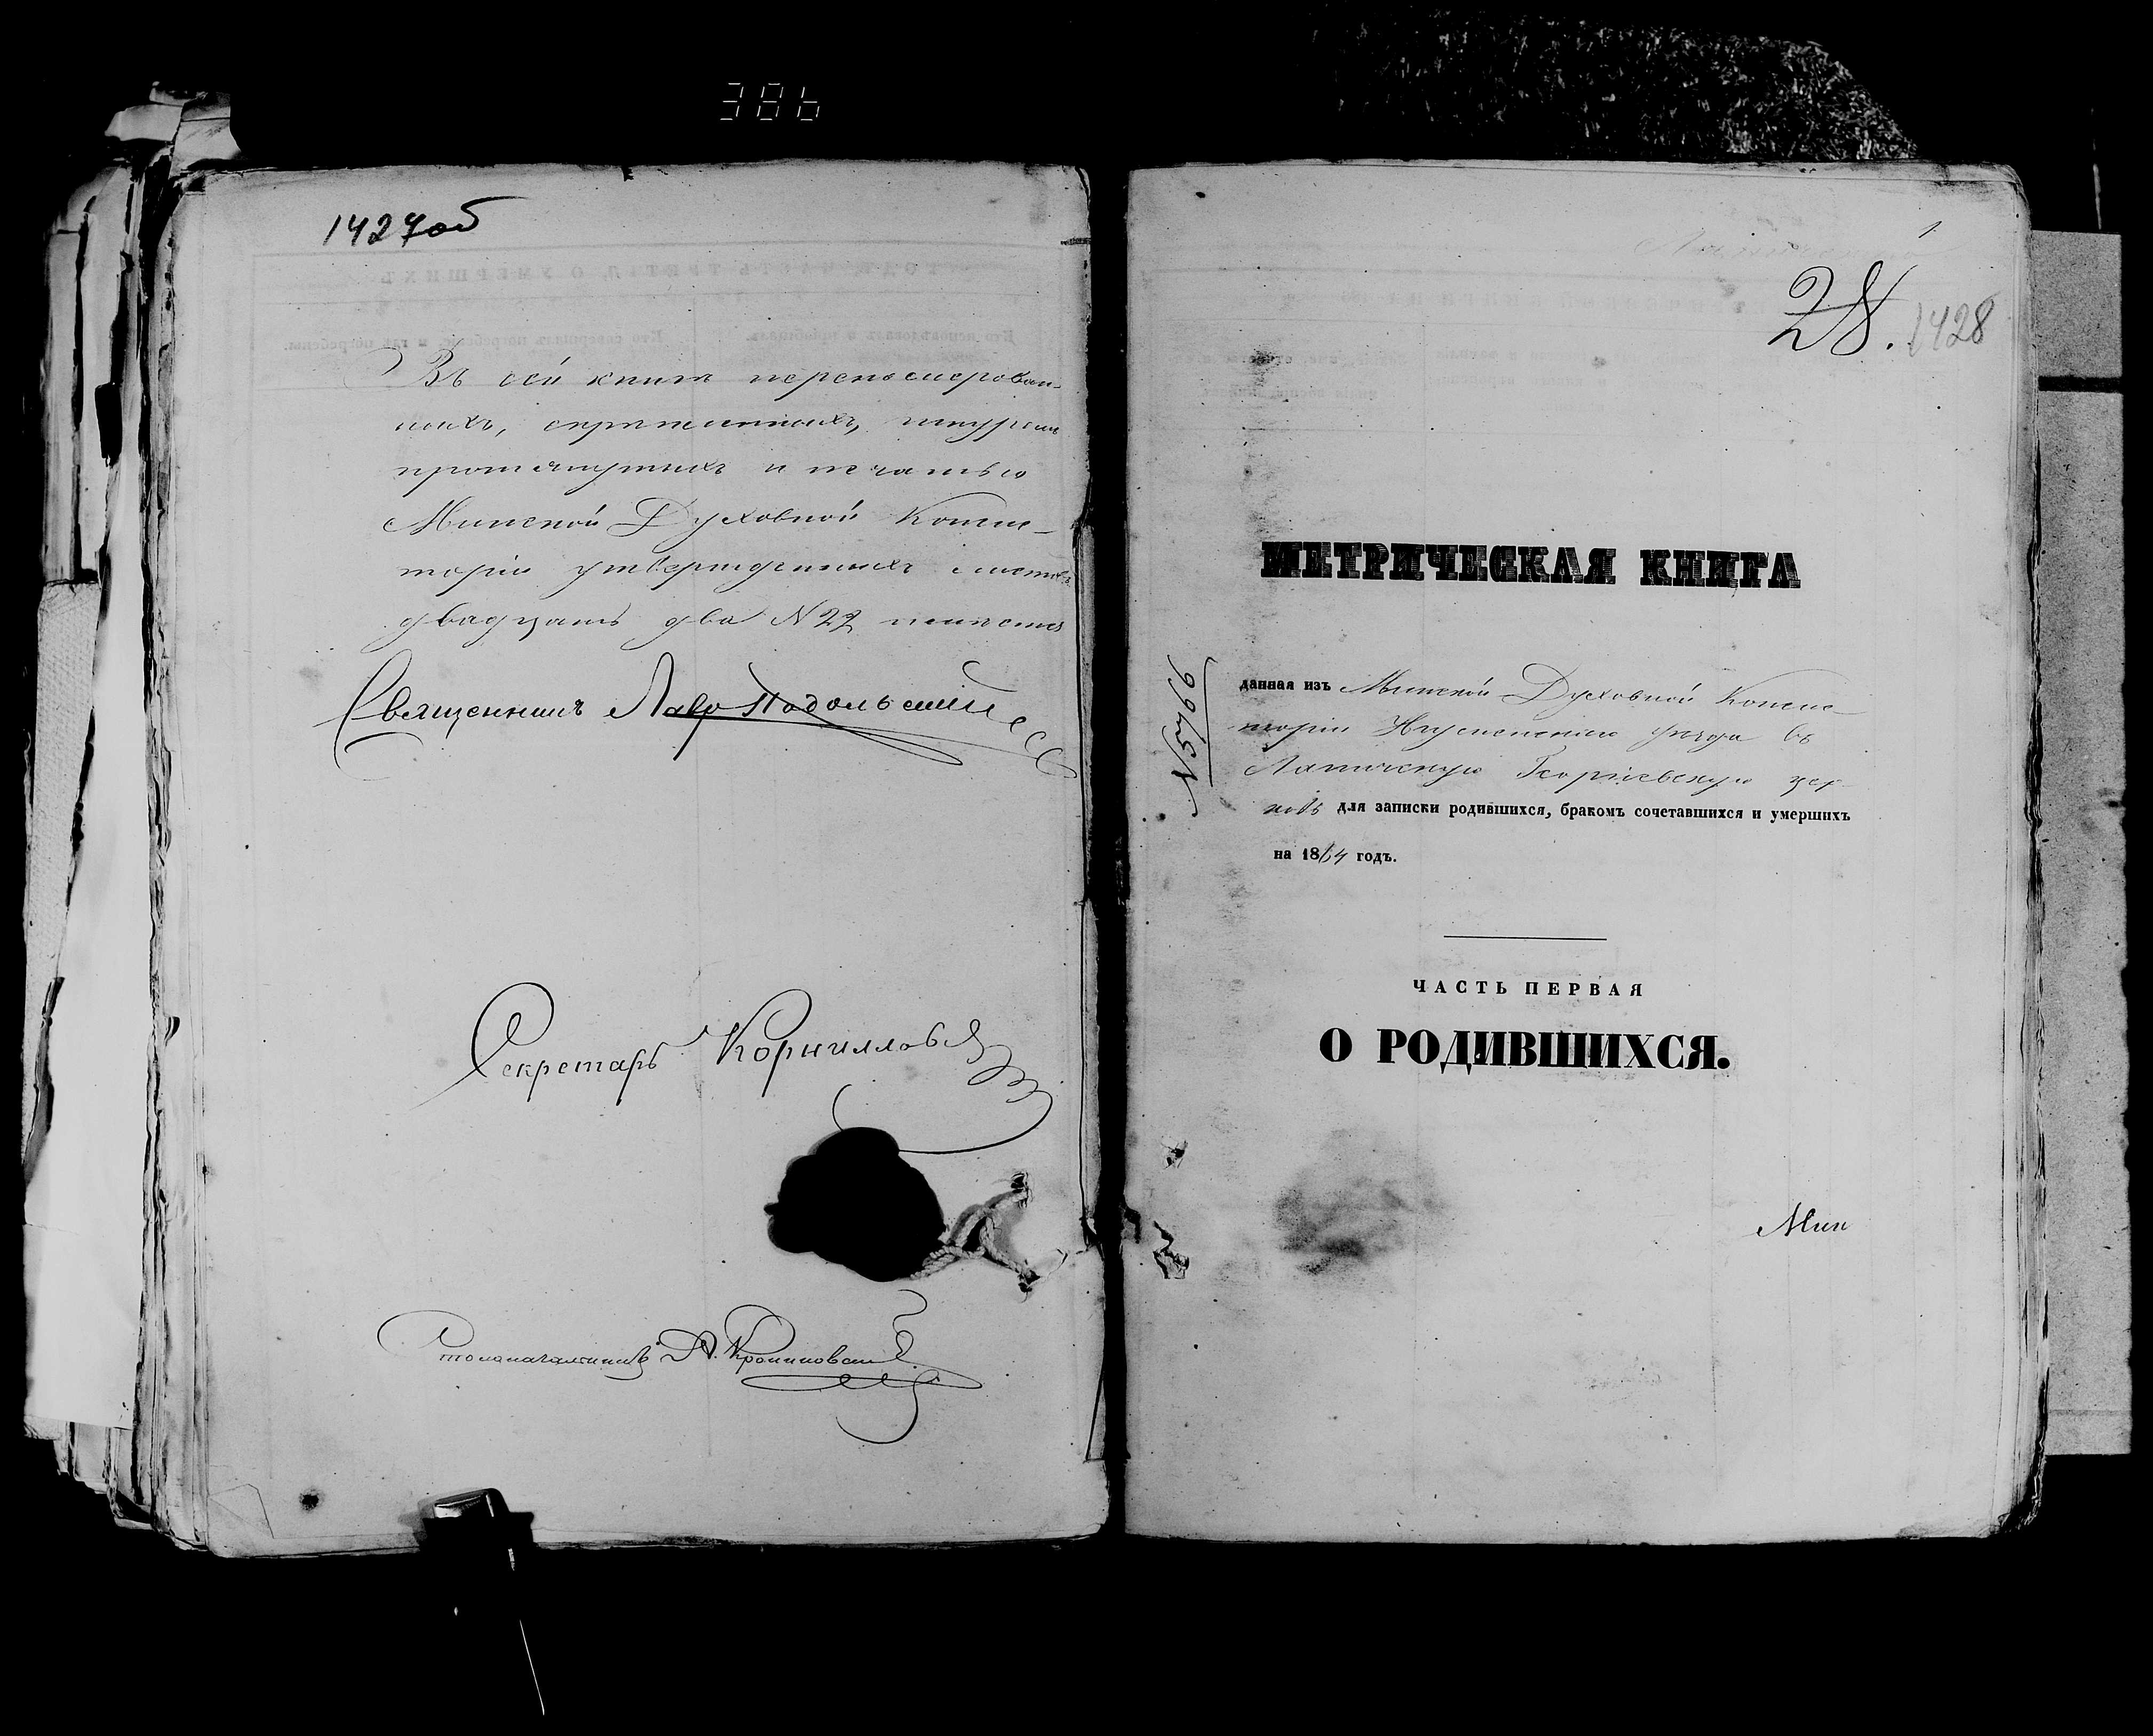 386
1427об
Въ сей книгѣ перенумерован-
ныхъ, скрѣпленныхъ, шнуромъ
протянутыхъ и печатью
Минской Духовной Консис-
торіи утвержденныхъ листовъ
двадцать два № 22
Священникъ Подольскій
Секретарь Корнилловъ
Столоначальникъ
1
28. 1428
МЕТРИЧЕСКАЯ КНИГА
№5766
данная изъ Минской Духовной Консис-
торіи Игуменскаго уѣзда въ
Лапичскую Георгіевскую цер-
ковь для записки родившихся, бракомъ сочетавшихся и умершихъ
на 1864 годъ.
ЧАСТЬ ПЕРВАЯ
О РОДИВШИХСЯ.
Мин